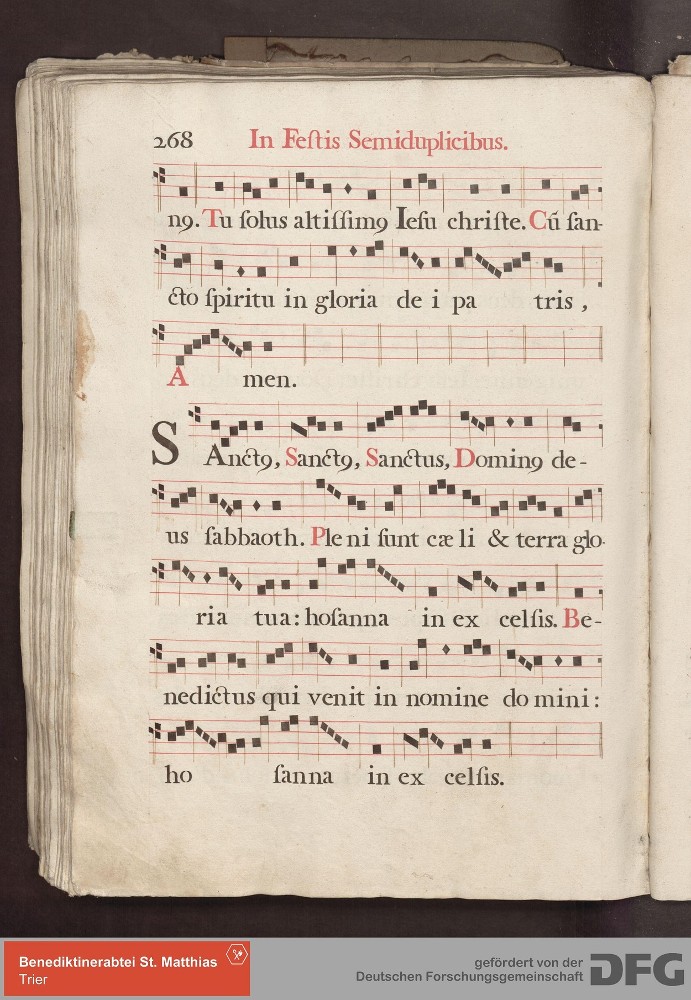 268 In Feſtis Semiduplicibus.
n9. Tu ſolus altiſſim9 Ieſu chriſte. Cũ ſan-
cto ſpiritu in gloria de i pa tris ,
A men.
SAnct9, Sanct9, Sanctus, Domin9 de-
us ſabbaoth. Ple ni ſunt cæ li & terra glo-
ria tua: hoſanna in ex celſis. Be-
nedictus qui venit in nomine do mini :
ho ſanna in ex celſis.
Benediktinerabtei St. Matthias
Trier
gefördert von der
Deutschen Forschungsgemeinschaft
DFG